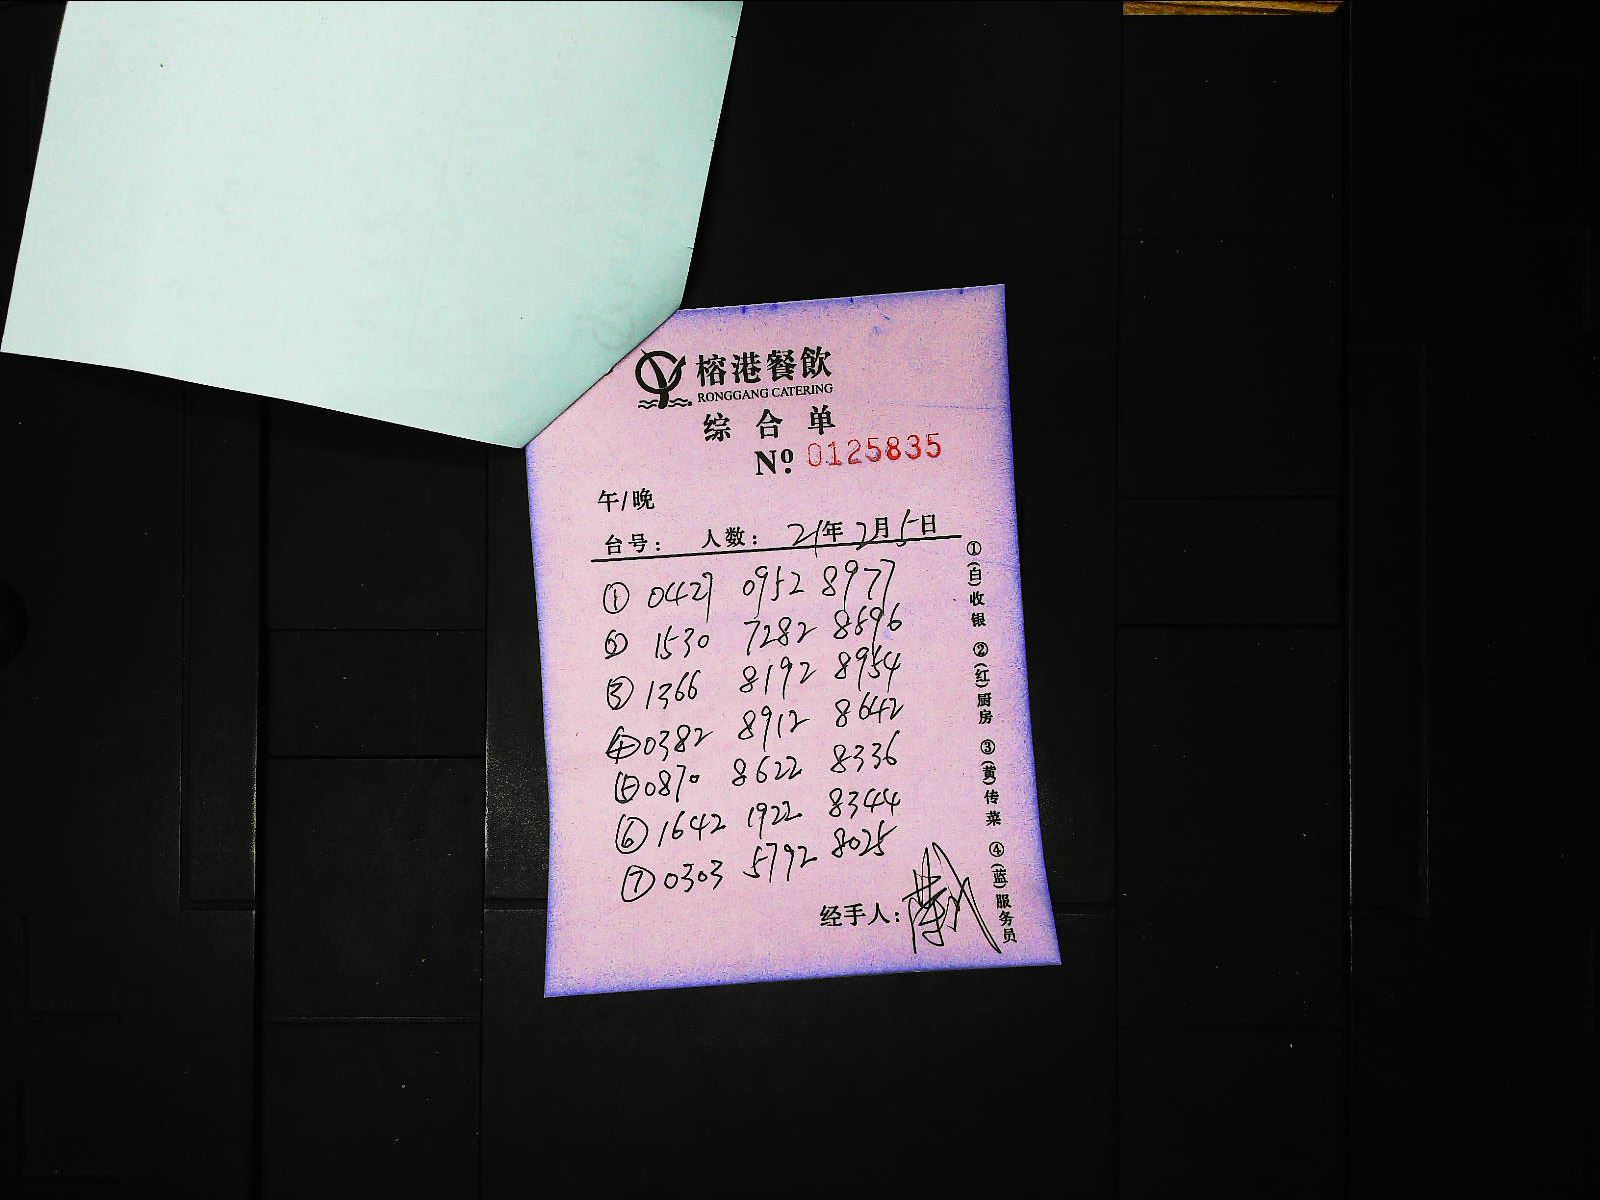 榕港餐飲
RONGGANG CATERING
综合单
Nº 0125835
午/晚
台号: 人数: 21年2月5日
① 0427 0952 8977
② 1530 7282 8896
③ 1366 8192 8954
④ 0382 8912 8642
⑤ 0870 8622 8336
⑥ 1642 1922 8344
⑦ 0303 5792 8025
经手人:
①(白)收银 ②(红)厨房 ③(黄)传菜 ④(蓝)服务员